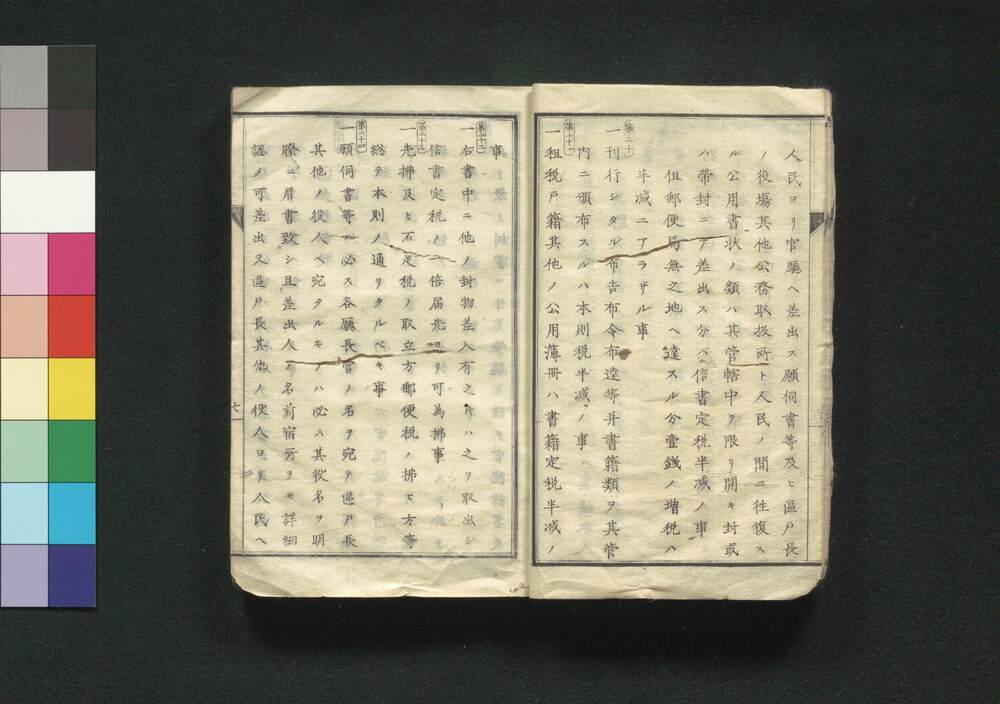 人民ヨリ官廳ヘ差出ス願伺書等及ヒ區戸長
ノ役塲其他公務取扱所ト人民ノ間ニ往復ス
ル公用書状ノ類ハ其管轄中ヲ限リ開キ封或
ハ帶封ニテ差出ス分ハ信書定税半减ノ事
但郵便局無之地ヘ達スル分壹錢ノ増税ハ
半减ニアラザル事
第二十
一刊行シタル布告布令布達等并書籍類ヲ其管
内ニ頒布スルハ本則税半减ノ事
第二十一
一租税戸籍其他ノ公用簿冊ハ書籍定税半减ノ
事
第二十二
一右書中ニ他ノ封物差入有之トキハ之ヲ取出シ
信書定税ノ一倍届先ヨリ可為拂事
第二十三
一先拂及ヒ不足税ノ取立方郵便税ノ拂ヒ方等
総テ本則ノ通リタルベキ事
第二十四
一願伺書等ハ必ス各廳長官ノ名ヲ宛テ區戸長
其他ノ役人ヘ宛タルモノハ必ス其役名ヲ明
瞭ニ肩書致シ且差出人ノ名前宿所ヲモ詳細
認メ可差出又區戸長其他ノ役人ヨリ人民ヘ
七